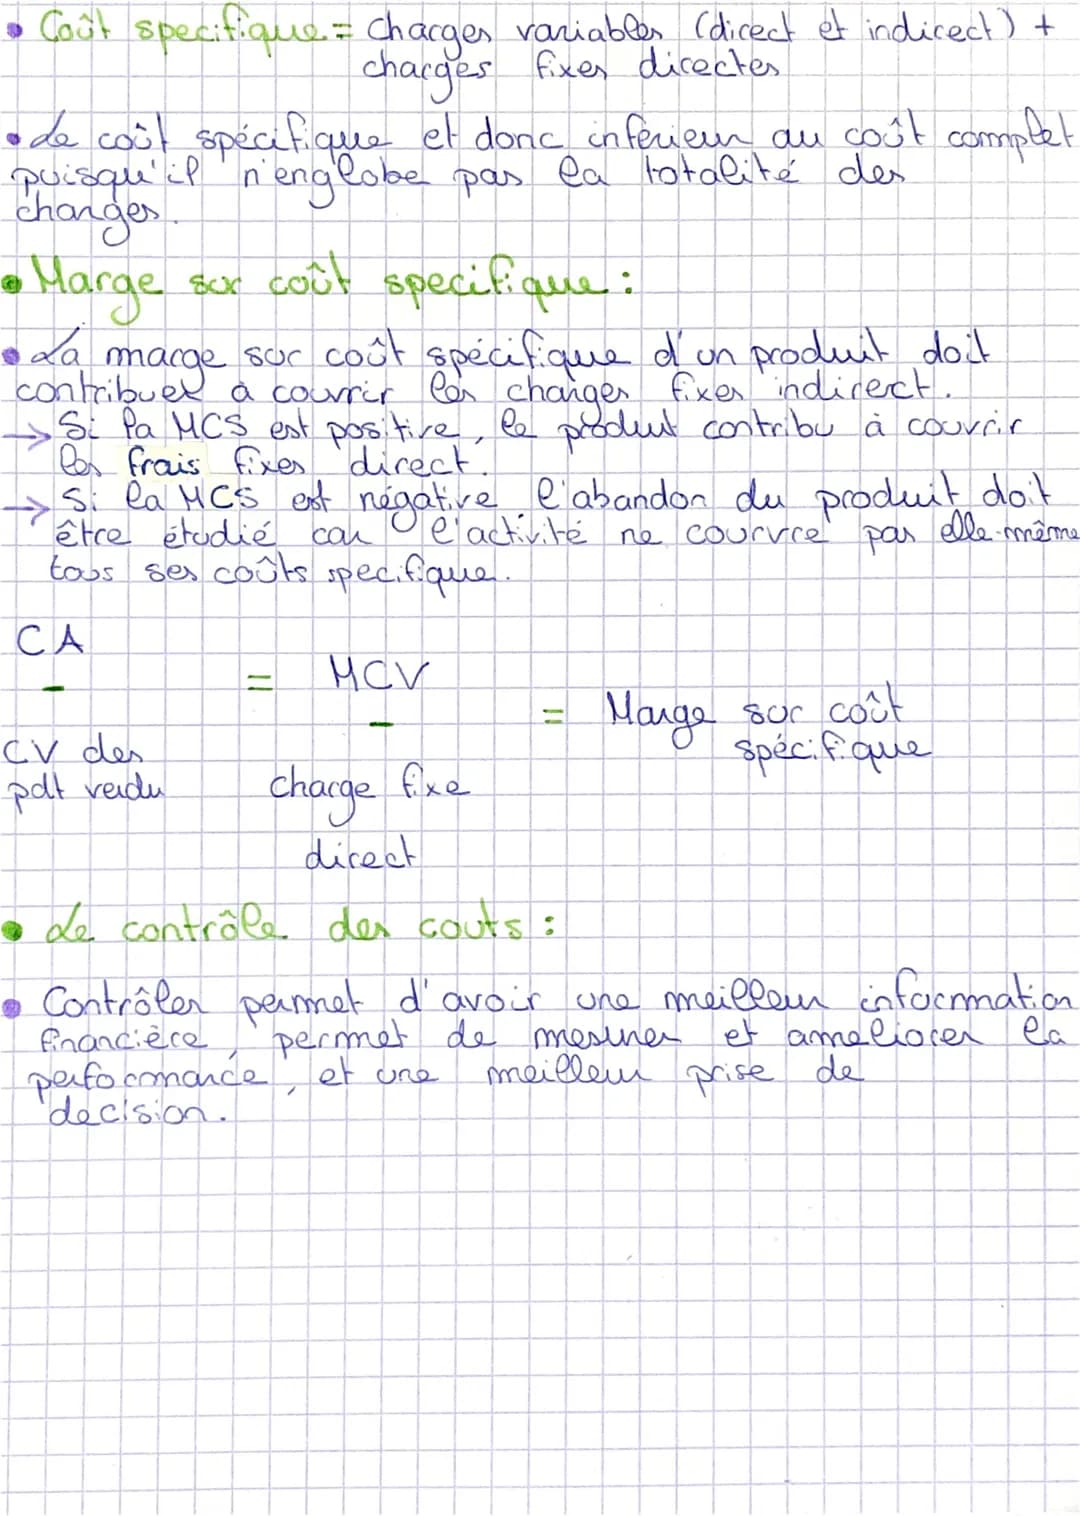 • Coût specifique = charges variables (direct et indirect) +
charges fixes directes
• Le coût spécifique et donc inférieur au coût complet
puisqu'il n'englobe pas la totalité des
charges.
• Marge sur coût specifique :
• La marge sur coût spécifique d'un produit doit
contribuer à couvrir les charges fixes indirect.
→ Si la MCS est positive, le produit contribu à couvrir
les frais fixes direct.
→ Si la MCS est négative, l'abandon du produit doit
être étudié car l'activité ne courvre pas elle-même
tous ses coûts specifique.
CA
-
= MCV
-
= Marge sur coût
spécifique
CV des
pdt vendu
charge fixe
direct
• Le contrôle des couts :
• Contrôler permet d'avoir une meilleur information
financière, permet de mesurer et ameliorer la
performance, et une meilleur prise de
decision.